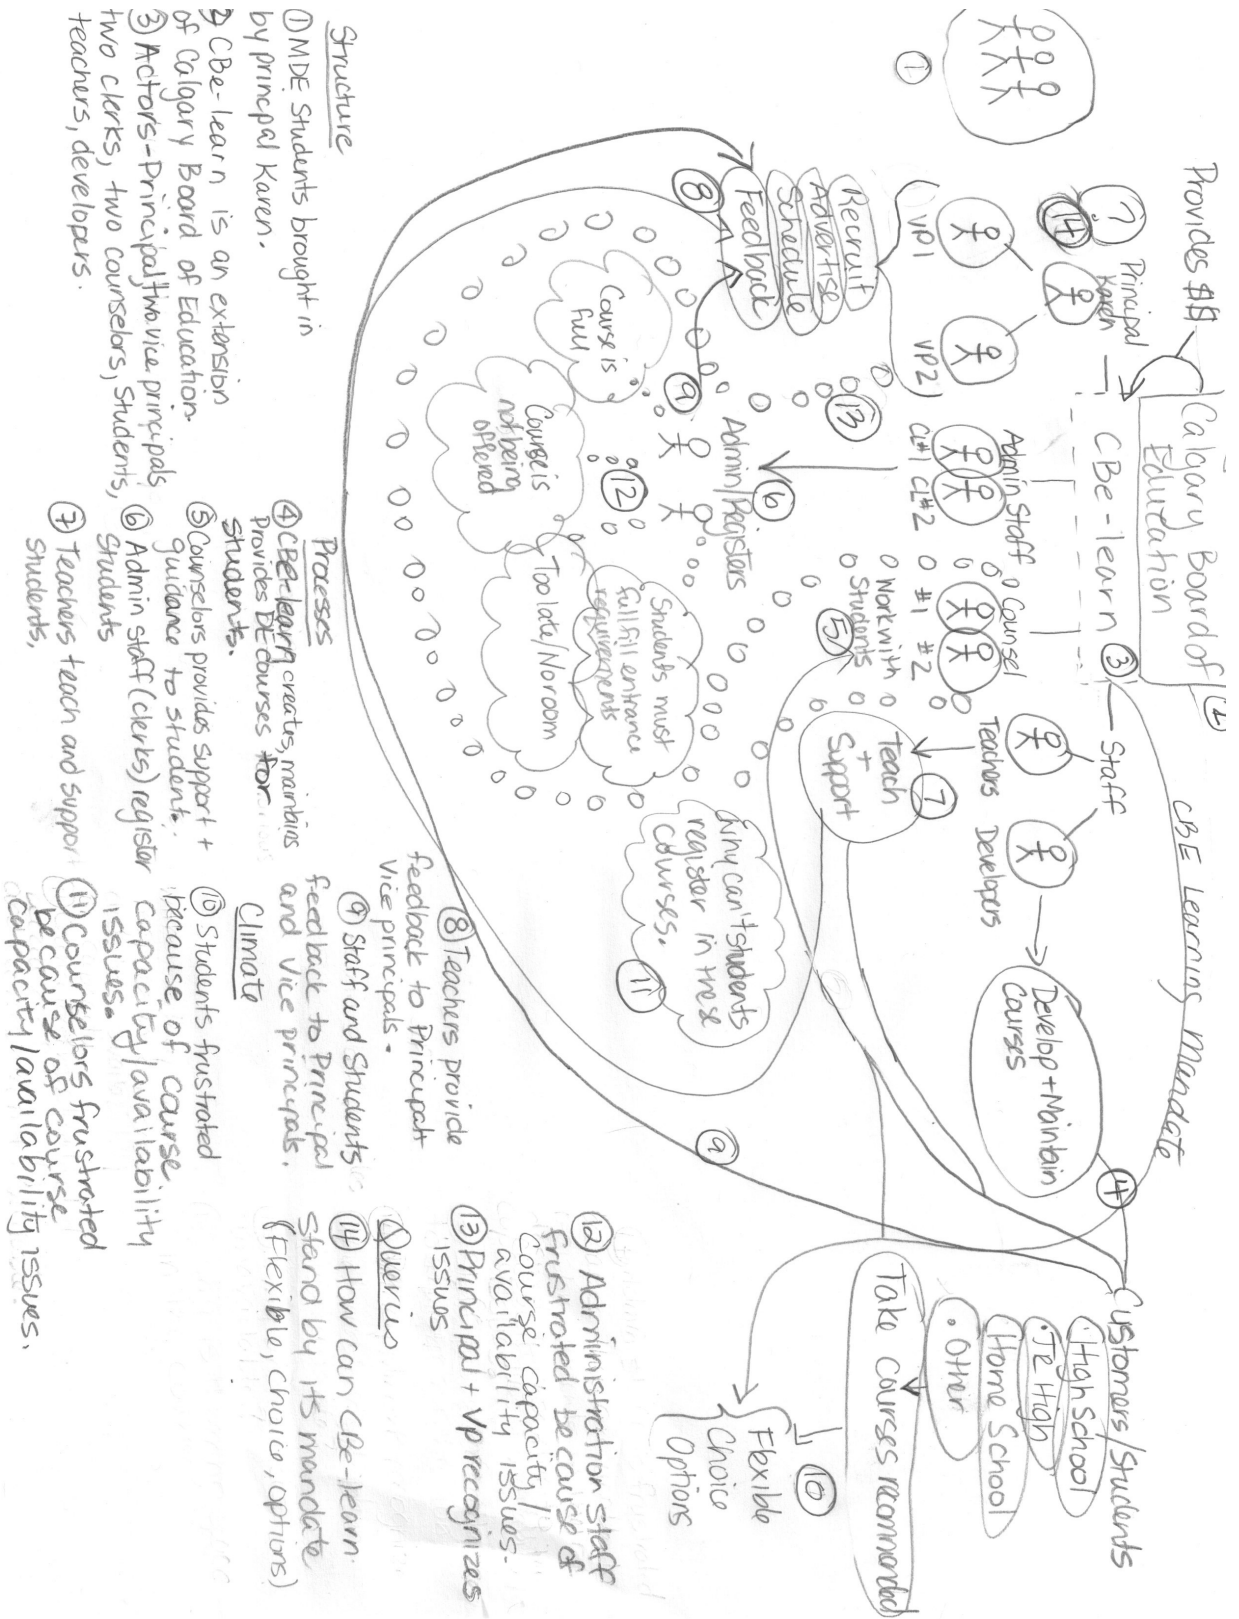 ①
Provides $$
Calgary Board of
Education
②
CBe-learn
③
CBE Learning Mandate
?
⑭
Principal
Karen
VP1
VP2
Recruit
Advertise
Schedule
Feedback
⑧
⑬
Admin Staff
CL#1 CL#2
⑥
Admin/Registers
⑨
⑫
Counsel
#1 #2
Work with
Students
⑤
Staff
Teachers
Developers
⑦
Teach
+
Support
Develop + Maintain
Courses
④
Customers/Students
• High School
• Jr High
• Home School
• Other
Take courses recommended
⑩
Flexible
Choice
Options
⑨
Course is
full
Course is
not being
offered
Too late/No room
Students must
full fill entrance
requirements
Why can't students
register in these
courses.
⑪
Structure
① MDE Students brought in
by principal Karen.
② CBe-learn is an extension
of Calgary Board of Education.
③ Actors-Principal, two vice principals
two clerks, two counselors, students,
teachers, developers.
Processes
④ CBE-learn creates, maintains
Provides DE courses for
students.
⑤ Counselors provides support +
guidance to students.
⑥ Admin staff (clerks) register
students
⑦ Teachers teach and support
students.
⑧ Teachers provide
feedback to Principal +
Vice principals.
⑨ Staff and Students
feedback to Principal
and vice principals.
Climate
⑩ Students frustrated
because of course
capacity/availability
issues.
⑪ Counsellors frustrated
because of course
capacity/availability issues.
⑫ Administration staff
frustrated because of
course capacity/
availability issues.
⑬ Principal + Vp recognizes
issues
Queries
⑭ How can CBe-learn
stand by its mandate
(Flexible, choice, options)